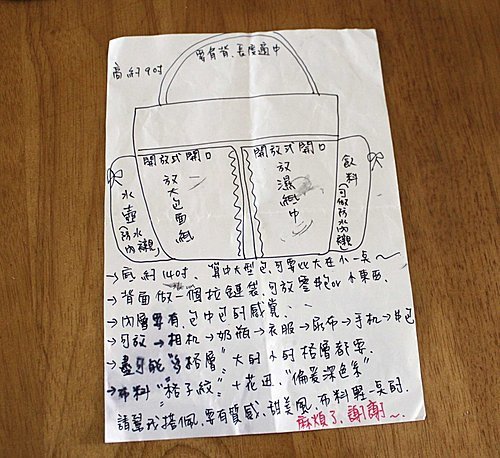 要有背、長度適中
高約9吋
開放式開口
放大包面紙
開放式開口
放濕紙巾
水壺
(防水內襯)
飲料
(可做防水內襯)
→底約14吋、算中大型包、可要比大在小一点～
→背面做一個拉鏈袋、可放零包or小東西、
→內層要有、包中包的感覺、
→可放→相机→奶瓶→衣服→尿布→手机→
→盡可能"多格層"、大的小的格層都要、
→布料"格子紋"+花逗、"偏愛深色系"
請幫我搭佩、要有質感、甜美風、布料輕一点的、
麻煩了、謝謝～、